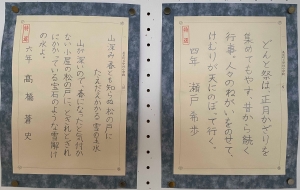 どんと祭は、正月かざりを
集めてもやす、昔から続く
行事。人々のねがいをのせて、
けむりが天にのぼって行く。
四年 瀬戸希歩
特選
山深み春とも知らぬ松の戸に
たえだえかかる雪の玉水
山が深いので、春になったと気付か
ない小屋の松の戸に、とぎれとぎれ
にかかっている宝石のような雪解け
の水よ。
六年 高橋蒼史
特選